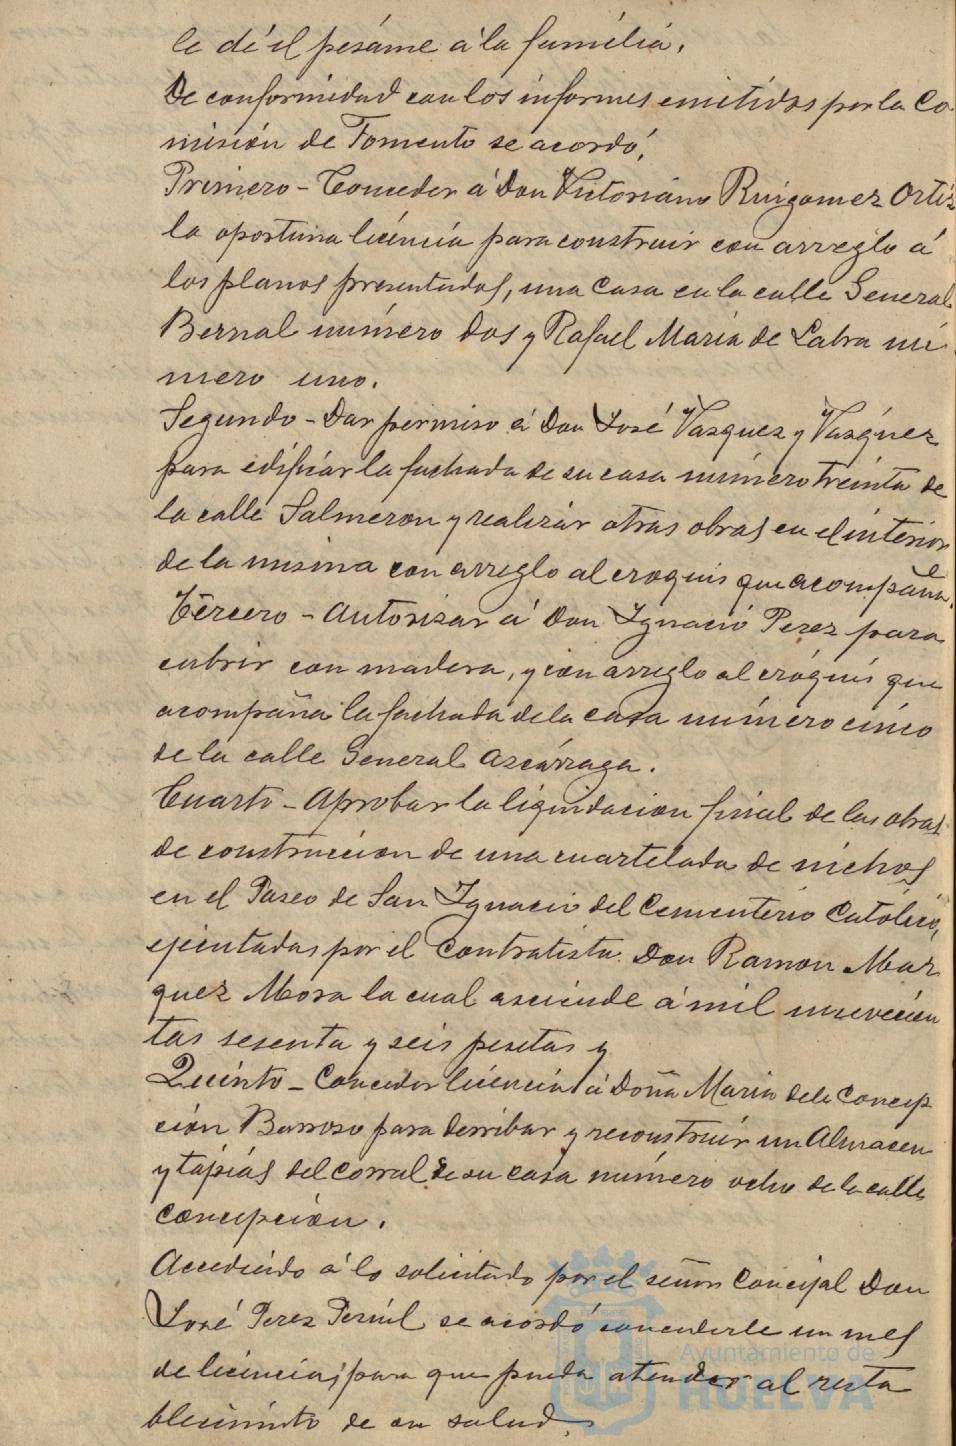 le dé el pesáme á la família.
De conformidad con los informes emitidos por la Co-
misión de Fomento se acordó,
Primero - Conceder á Don Victoriano Ruigomez Ortíz
la oportuna licéncia para construir con arreglo á
los planos presentados, una Casa en la calle General
Bernal número dos y Rafael María de Labra nú-
mero uno.
Segundo - Dar permiso á Don José Vazquez y Vazquez
para edificar la fachada de su casa número treinta de
la calle Salmeron y realizar otras obras en el interior
de la misma con arreglo al croquis que acompaña.
Tercero - Autorizar á Don Ignació Perez para
cubrir con madera, y con arreglo al cróquis que
acompaña la fachada de la casa número cinco
de la calle General Azcárraga.
Cuarto - Aprobar la liquidacion final de las obras
de construccion de una cuartelada de nichos
en el Paseo de San Ignacio del Cementerio Católico,
ejecutadas por el contratista Don Ramon Mar
quez Mora la cual asciende á mil novecien
tas sesenta y seis pesetas y
Quinto - Conceder licencia á Doña Maria de la Concep
ción Barroso para derribar y reconstruir un Almacen
y tápias del corral de su casa número ocho de la calle
Concepcion.
Accediendo á lo solicitado por el señor Concejal Don
José Perez Pernil se acordó concederle un mes
de licencia, para que pueda atender al resta
blecimiento de su salud.
Ayuntamiento de
HUELVA